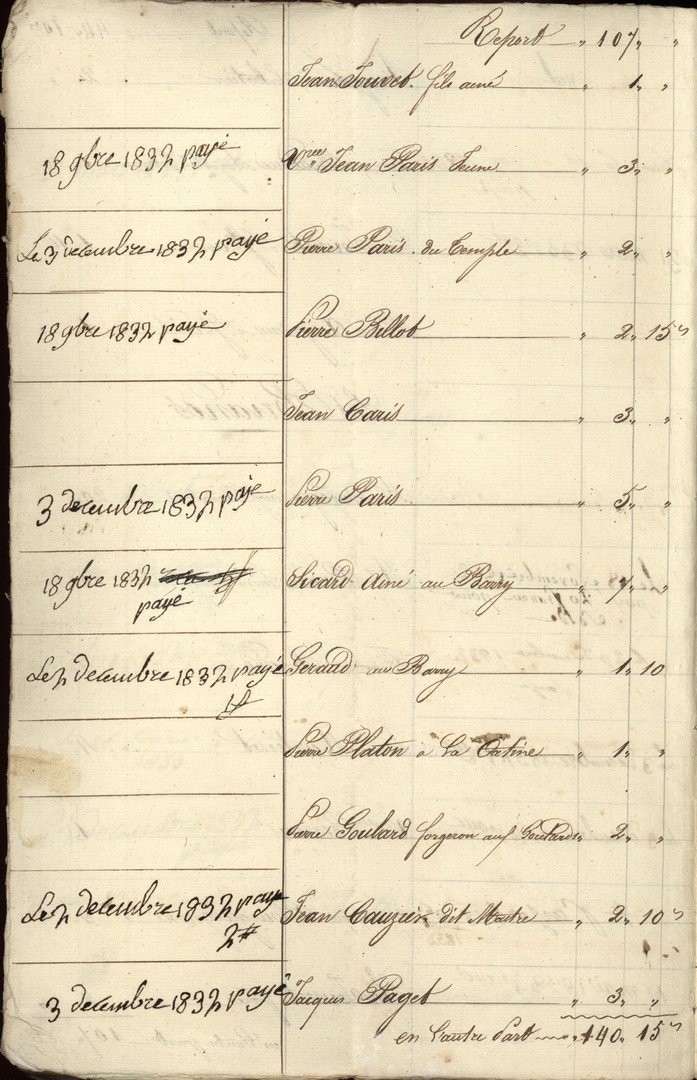 Report " 107 " "
Jean Jouvet fils ainé " 1 " "
18 9bre 1832 payé Vve Jean Paris Jeune " 3 " "
Le 3 decembre 1832 payé Pierre Paris du Temple " 2 " "
18 9bre 1832 payé Pierre Bellot " 2 " 15 s
Jean Caris " 3 " "
3 decembre 1832 payé Pierre Paris " 5 " "
18 9bre 1832 Sicard Ainé au Barry " 7 " "
payé
Le 2 decembre 1832 payé Geraud au Barry " 1 " 10
1#
Pierre Platon à La Catine " 1 " "
Pierre Goulard forgeron aux Goulards " 2 " "
Le 2 decembre 1832 payé Jean Cauzier dit Maitre " 2 " 10 s
2#
3 decembre 1832 payé Jacques Paget " 3 " "
en L'autre Part " 140 " 15 s